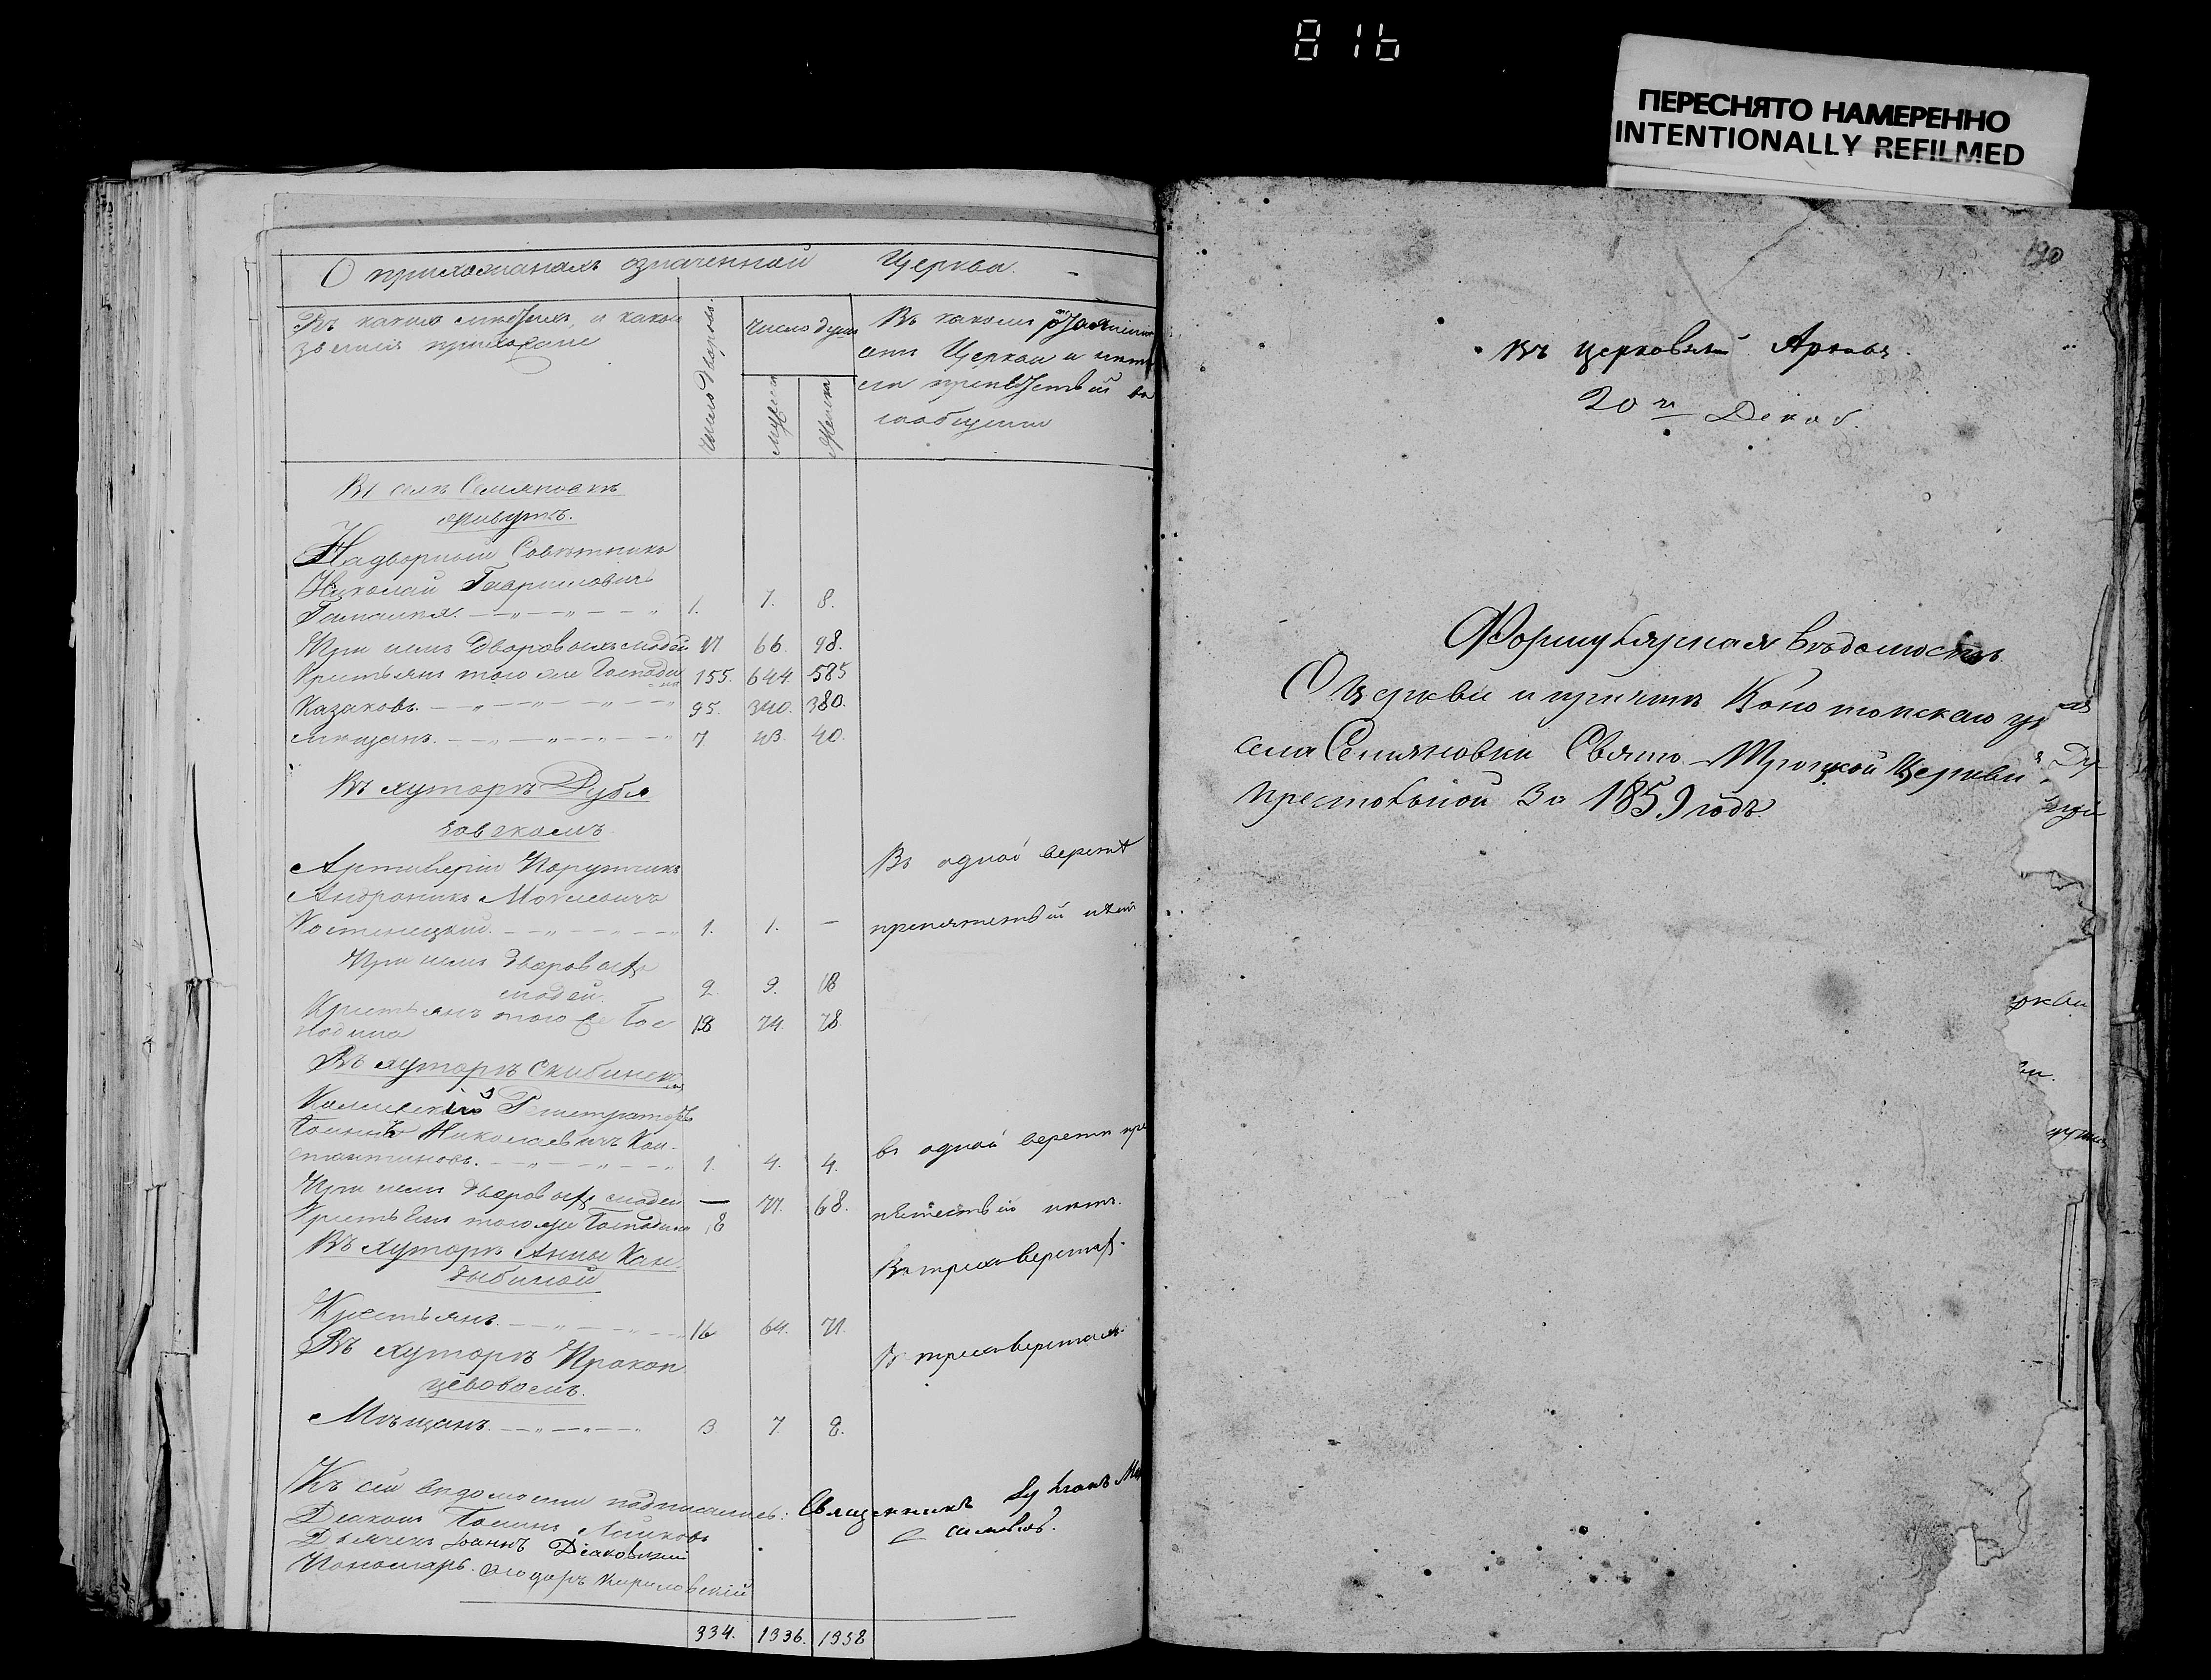 816
ПЕРЕСНЯТО НАМЕРЕННО
INTENTIONALLY REFILMED
О прихожанахъ означенной Церкви.
Въ какихъ мѣстахъ, и какого
званія прихожане
Число дворовъ.
Число душъ
мужеска
женска
Въ какомъ разстояніи
отъ Церкви и нѣтъ
ли препятствій въ
сообщеніи
Въ селѣ Семяновкѣ
живутъ.
Надворный Совѣтникъ
Николай Гавриловичъ
Гамалѣя. 1. 7. 8.
При немъ дворовыхъ людей 66. 98.
Крестьянъ того же Господина 155. 644. 585
Казаковъ. 95. 340. 380.
мѣщанъ. 7 43. 40.
Въ хуторѣ Дубя
говскомъ
Артилеріи Порутчикъ
Андроникъ
Костенецкій. 1. 1. —
Въ одной верстѣ
препятствій нѣтъ
При немъ дворовыхъ
людей. 2. 9. 18
Крестьянъ того же Гос
подина 18 74. 78.
Въ хуторѣ Скибинск
Колежскій Регистраторъ
Николаевичъ Кон-
стантиновъ. 1. 4. 4.
въ одной верстѣ пре
При немъ дворовыхъ людей — 71. 68.
Крестьянъ того же Господина 8
пятствій нѣтъ.
Въ хуторѣ Анны Кан
дыбиной
Въ трехъ верстах.
Крестьянъ. 16 64. 71.
Въ хуторѣ Прокоп
цевовомъ.
В трехъ верстахъ.
Мѣщанъ. 3 7. 8.
Къ сей ведомости подписались: Священникъ
Діаконъ
Дьячекъ Іоаннъ Діаковскій
Пономарь Федоръ Кириловскій
334. 1336. 1358
190
Въ церковный Архивъ.
20 го Декаб.
Формулярная вѣдомость
О Церкви и причтѣ Конотопскаго уѣ
села Семяновки Свято-Троицкой Церкви
престольной За 1859 годъ.